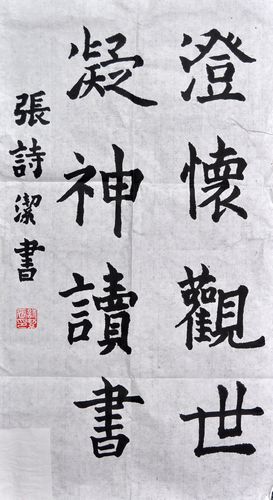 澄懷觀世
凝神讀書
張詩潔書